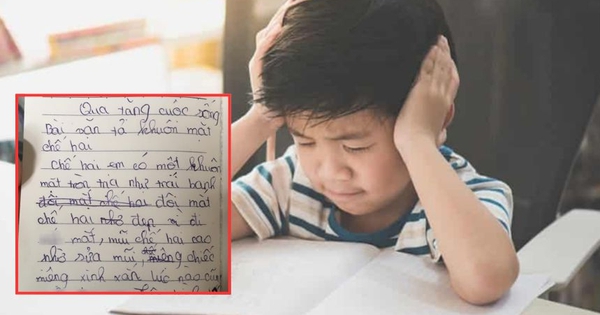 Qua tặng cuộc sống
Bài văn tả khuôn mặt
chế hai
Chế hai em có một khuôn
mặt tròn trịa như trái banh
đôi mắt chế hai đôi mắt
chế hai nhỏ đẹp vì đi
mắt, mũi chế hai cao
nhờ sửa mũi, miệng chiếc
miệng xinh xắn lúc nào cũng